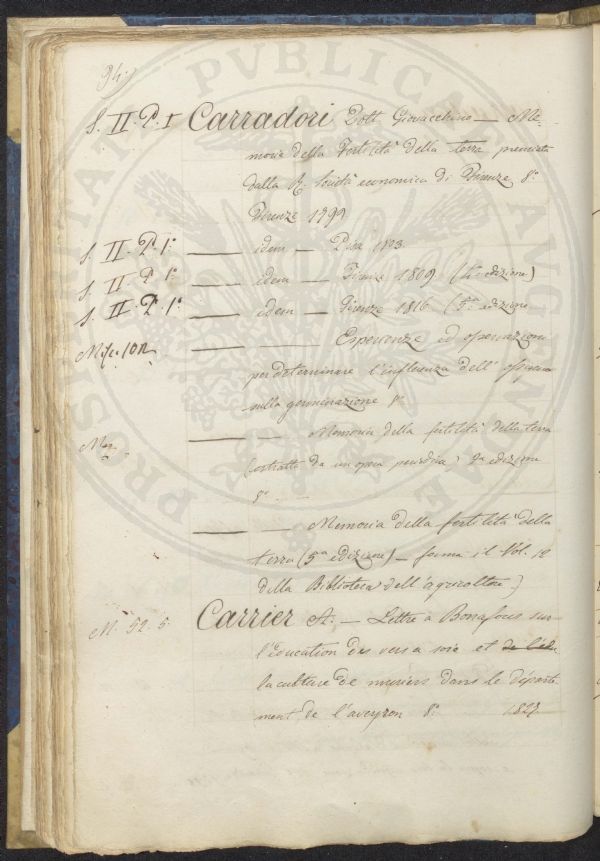 94.
S. II. P. I Carradori Dott. Giovacchino — Me-
moria della Fertilità della terra premiata
dalla R. Società economica di Firenze 8.°
Firenze 1799
S. II. P. 1.° idem — Pisa 1803
S. II. P. 1.° idem — Firenze 1809 (4.a edizione)
S. II. P. 1.° idem — Firenze 1816 (5.a edizione
Misc. 102 Esperienze ed osservazioni
per determinare l'influenza dell' ossigeno
sulla germinazione 8.°
Memoria della fertilità della terra
(estratta da un opera periodica) 2.a edizione
8.°
Memoria della fertilità della
terra (5.a edizione) — forma il Vol.
della Biblioteca dell'agricoltore)
M. 52. 5. Carrier A. — Lettre a Bonafous sur
l'éducation des vers a soie et de l'édu
la culture de muriers dans le départe
ment de l'aveyron 8.° 1827.
PROSPICIENTIAE PVBLICAE AVGENDAE